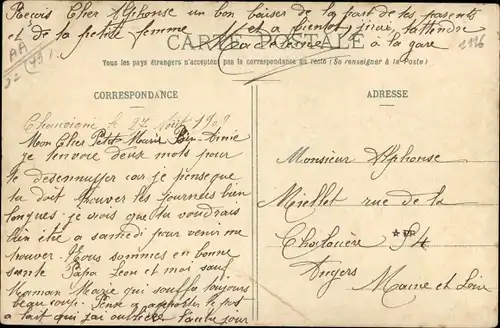 Reçois Cher Alphonse un bon baiser de la part de tes parents
et de ta petite femme et a bientot j'irai t'attendre
CARTE POSTALE
la deine à la gare
Tous les pays étrangers n'acceptent pas la correspondance au recto (Se renseigner à la Poste)
CORRESPONDANCE
le 27 Août 190
Mon Cher Petit Mari Bien Aimé
je t'envoie deux mots pour
te desennuyer car je pense que
tu doit trouver les journées bien
longues. je crois que tu voudrais
bien être a samedi pour venir me
trouver. Nous sommes en bonne
santé Papa Leon et moi sauf
Maman Marie qui souffre toujours
beaucoup. Pense a apporter le pot
a lait qui j'ai oublié l'autre jour
ADRESSE
Monsieur Alphonse
Miellet rue de la
Chalouère 94
Angers
Maine et Loire